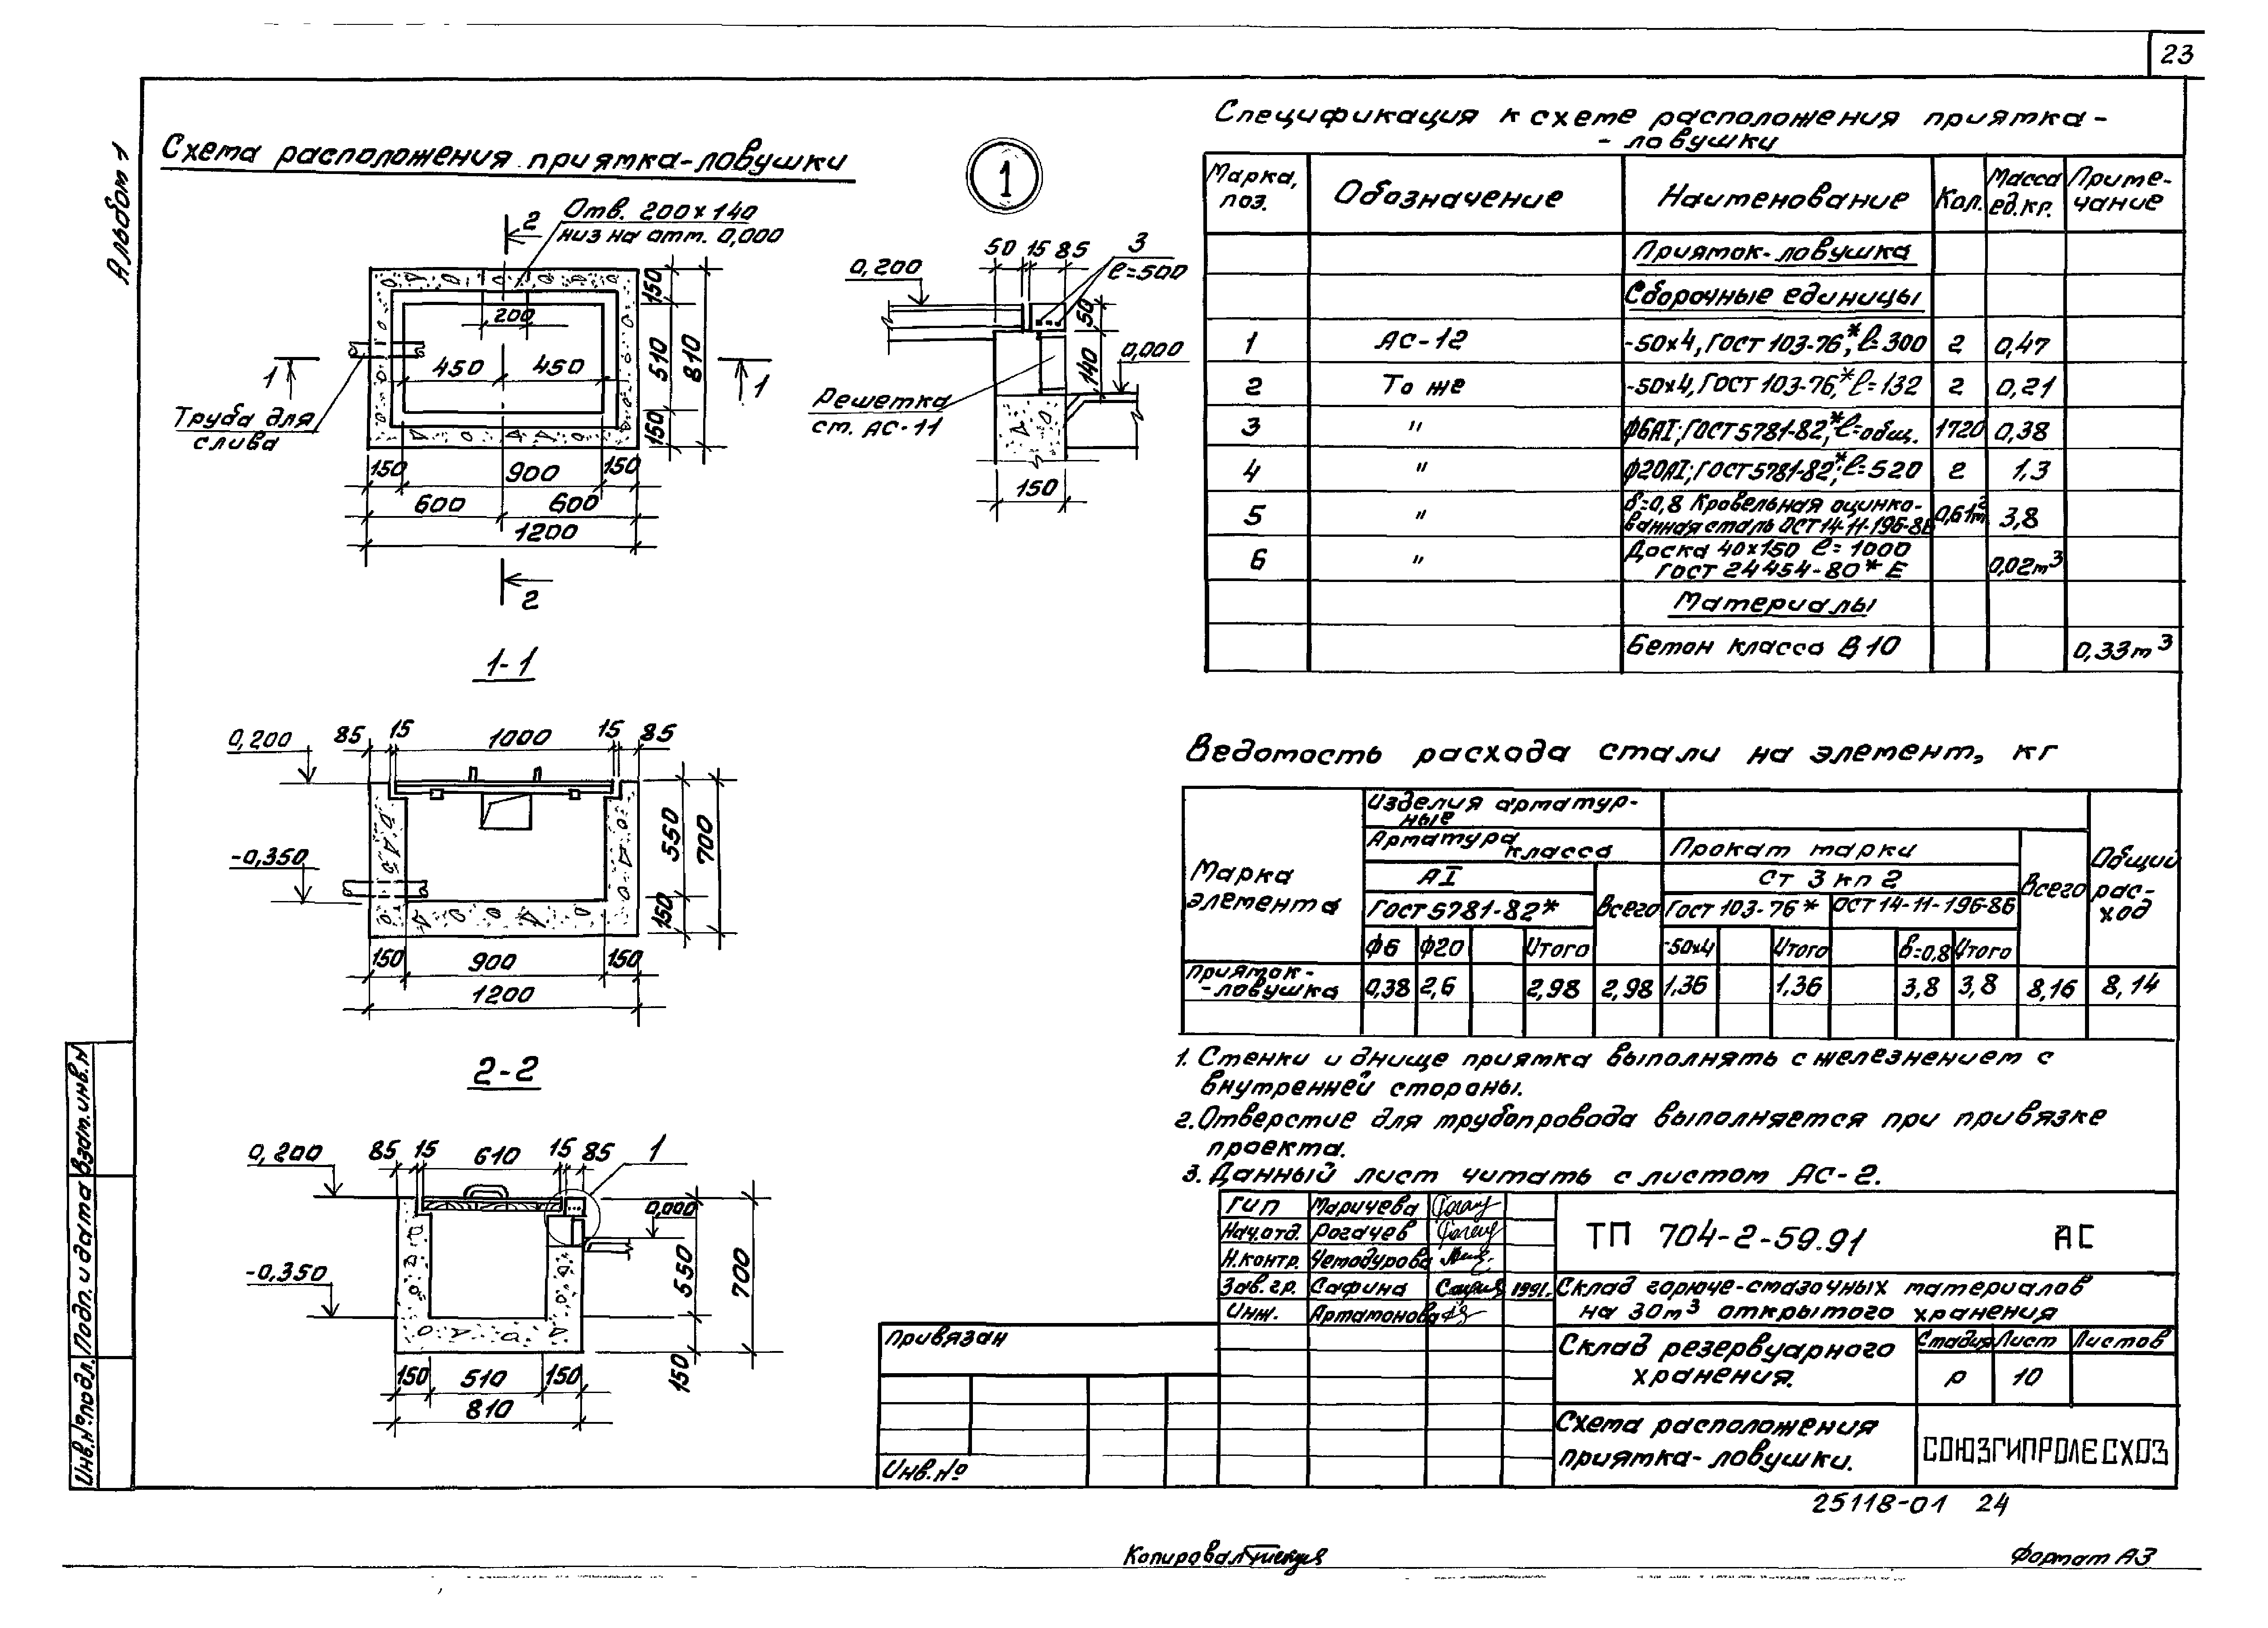 23
Альбом 1
Схема расположения приямка-ловушки
Отв. 200х140
низ на отм. 0,000
2
200
450 450
150
510
150
810
1
1
Труба для
слива
150 900 150
600 600
1200
2
1
50 15 85
3
ℓ=500
0,200
50
140
0,000
Решетка
ст. АС-11
150
1-1
85 15 1000 15 85
0,200
-0,350
550
150
700
150 900 150
1200
2-2
85 15 610 15 85
1
0,200
0,000
-0,350
550
150
700
150 510 150
810
Спецификация к схеме расположения приямка-
-ловушки
Марка, поз. Обозначение Наименование Кол. Масса ед.кг. Приме-чание
Приямок-ловушка
Сборочные единицы
1 АС-12 -50х4, ГОСТ 103-76*, ℓ=300 2 0,47
2 То же -50х4, ГОСТ 103-76* ℓ=132 2 0,21
3 " ф6АI; ГОСТ 5781-82*, ℓ=общ. 1720 0,38
4 " ф20АI; ГОСТ 5781-82*; ℓ=520 2 1,3
5 " δ=0,8 Кровельная оцинко-
ванная сталь ОСТ 14-11-196-86 0,61м² 3,8
6 " Доска 40х150 ℓ=1000
ГОСТ 24454-80*Е 0,02м³
Материалы
Бетон класса В10 0,33м³
Ведомость расхода стали на элемент, кг
Марка элемента
Изделия арматур-
ные
Арматура класса
Прокат марки
АI
Ст 3 кп 2
Всего
Всего
Общий рас-ход
ГОСТ 5781-82*
ГОСТ 103-76* ОСТ 14-11-196-86
ф6 ф20 Итого -50х4 Итого δ=0,8 Итого
Приямок-
-ловушка 0,38 2,6 2,98 2,98 1,36 1,36 3,8 3,8 8,16 8,14
1. Стенки и днище приямка выполнять с железнением с
внутренней стороны.
2. Отверстие для трубопровода выполняется при привязке
проекта.
3. Данный лист читать с листом АС-2.
ГИП Маричева
Нач.отд. Рогачев
Н.контр. Чемодурова
Зав.гр. Сафина 1991.
Инж. Артамонова
ТП 704-2-59.91 АС
Склад горюче-смазочных материалов
на 30м³ открытого хранения
Склад резервуарного
хранения.
Стадия Лист Листов
Р 10
Схема расположения
приямка-ловушки.
СОЮЗГИПРОЛЕСХОЗ
Привязан
Инв.№
Взам.инв.№
Подп. и дата
Инв.№подл.
25118-01 24
Копировал
Формат А3